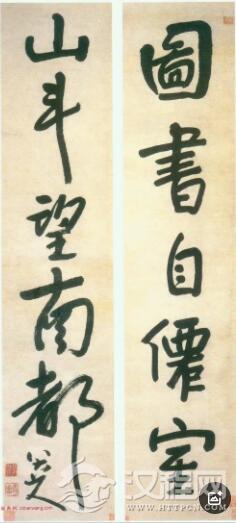 圖書自僊室
山斗望南都
八大山人
cidianwang.com
汉程网
WWW.HTTPCN.COM